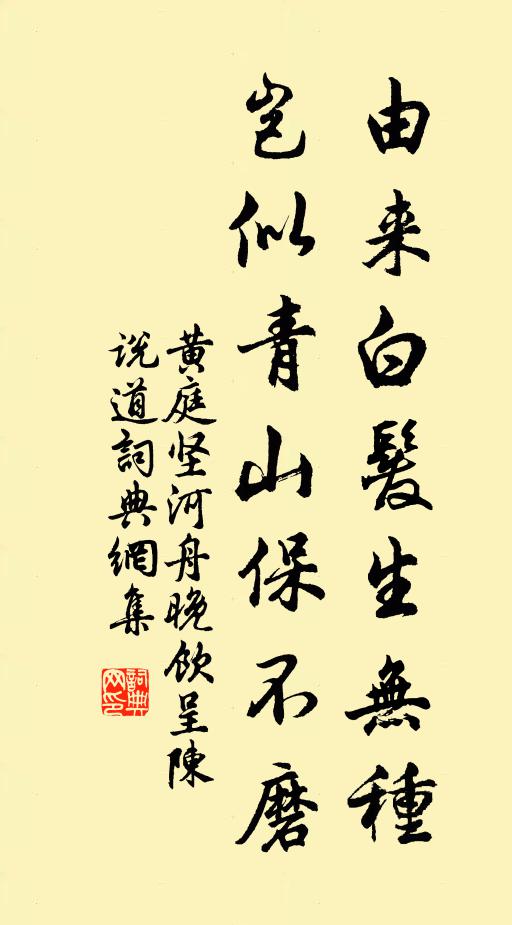 由来白髮生無種
岂似青山保不磨
黄庭坚河舟晚饮呈陳
说道詞典網集
詞典网印